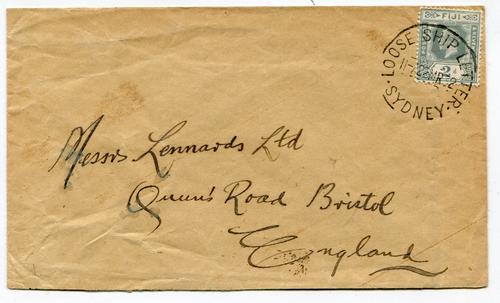 FIJI
LOOSE SHIP LETTER
SYDNEY
Messrs Lennards Ltd
Queen's Road Bristol
England